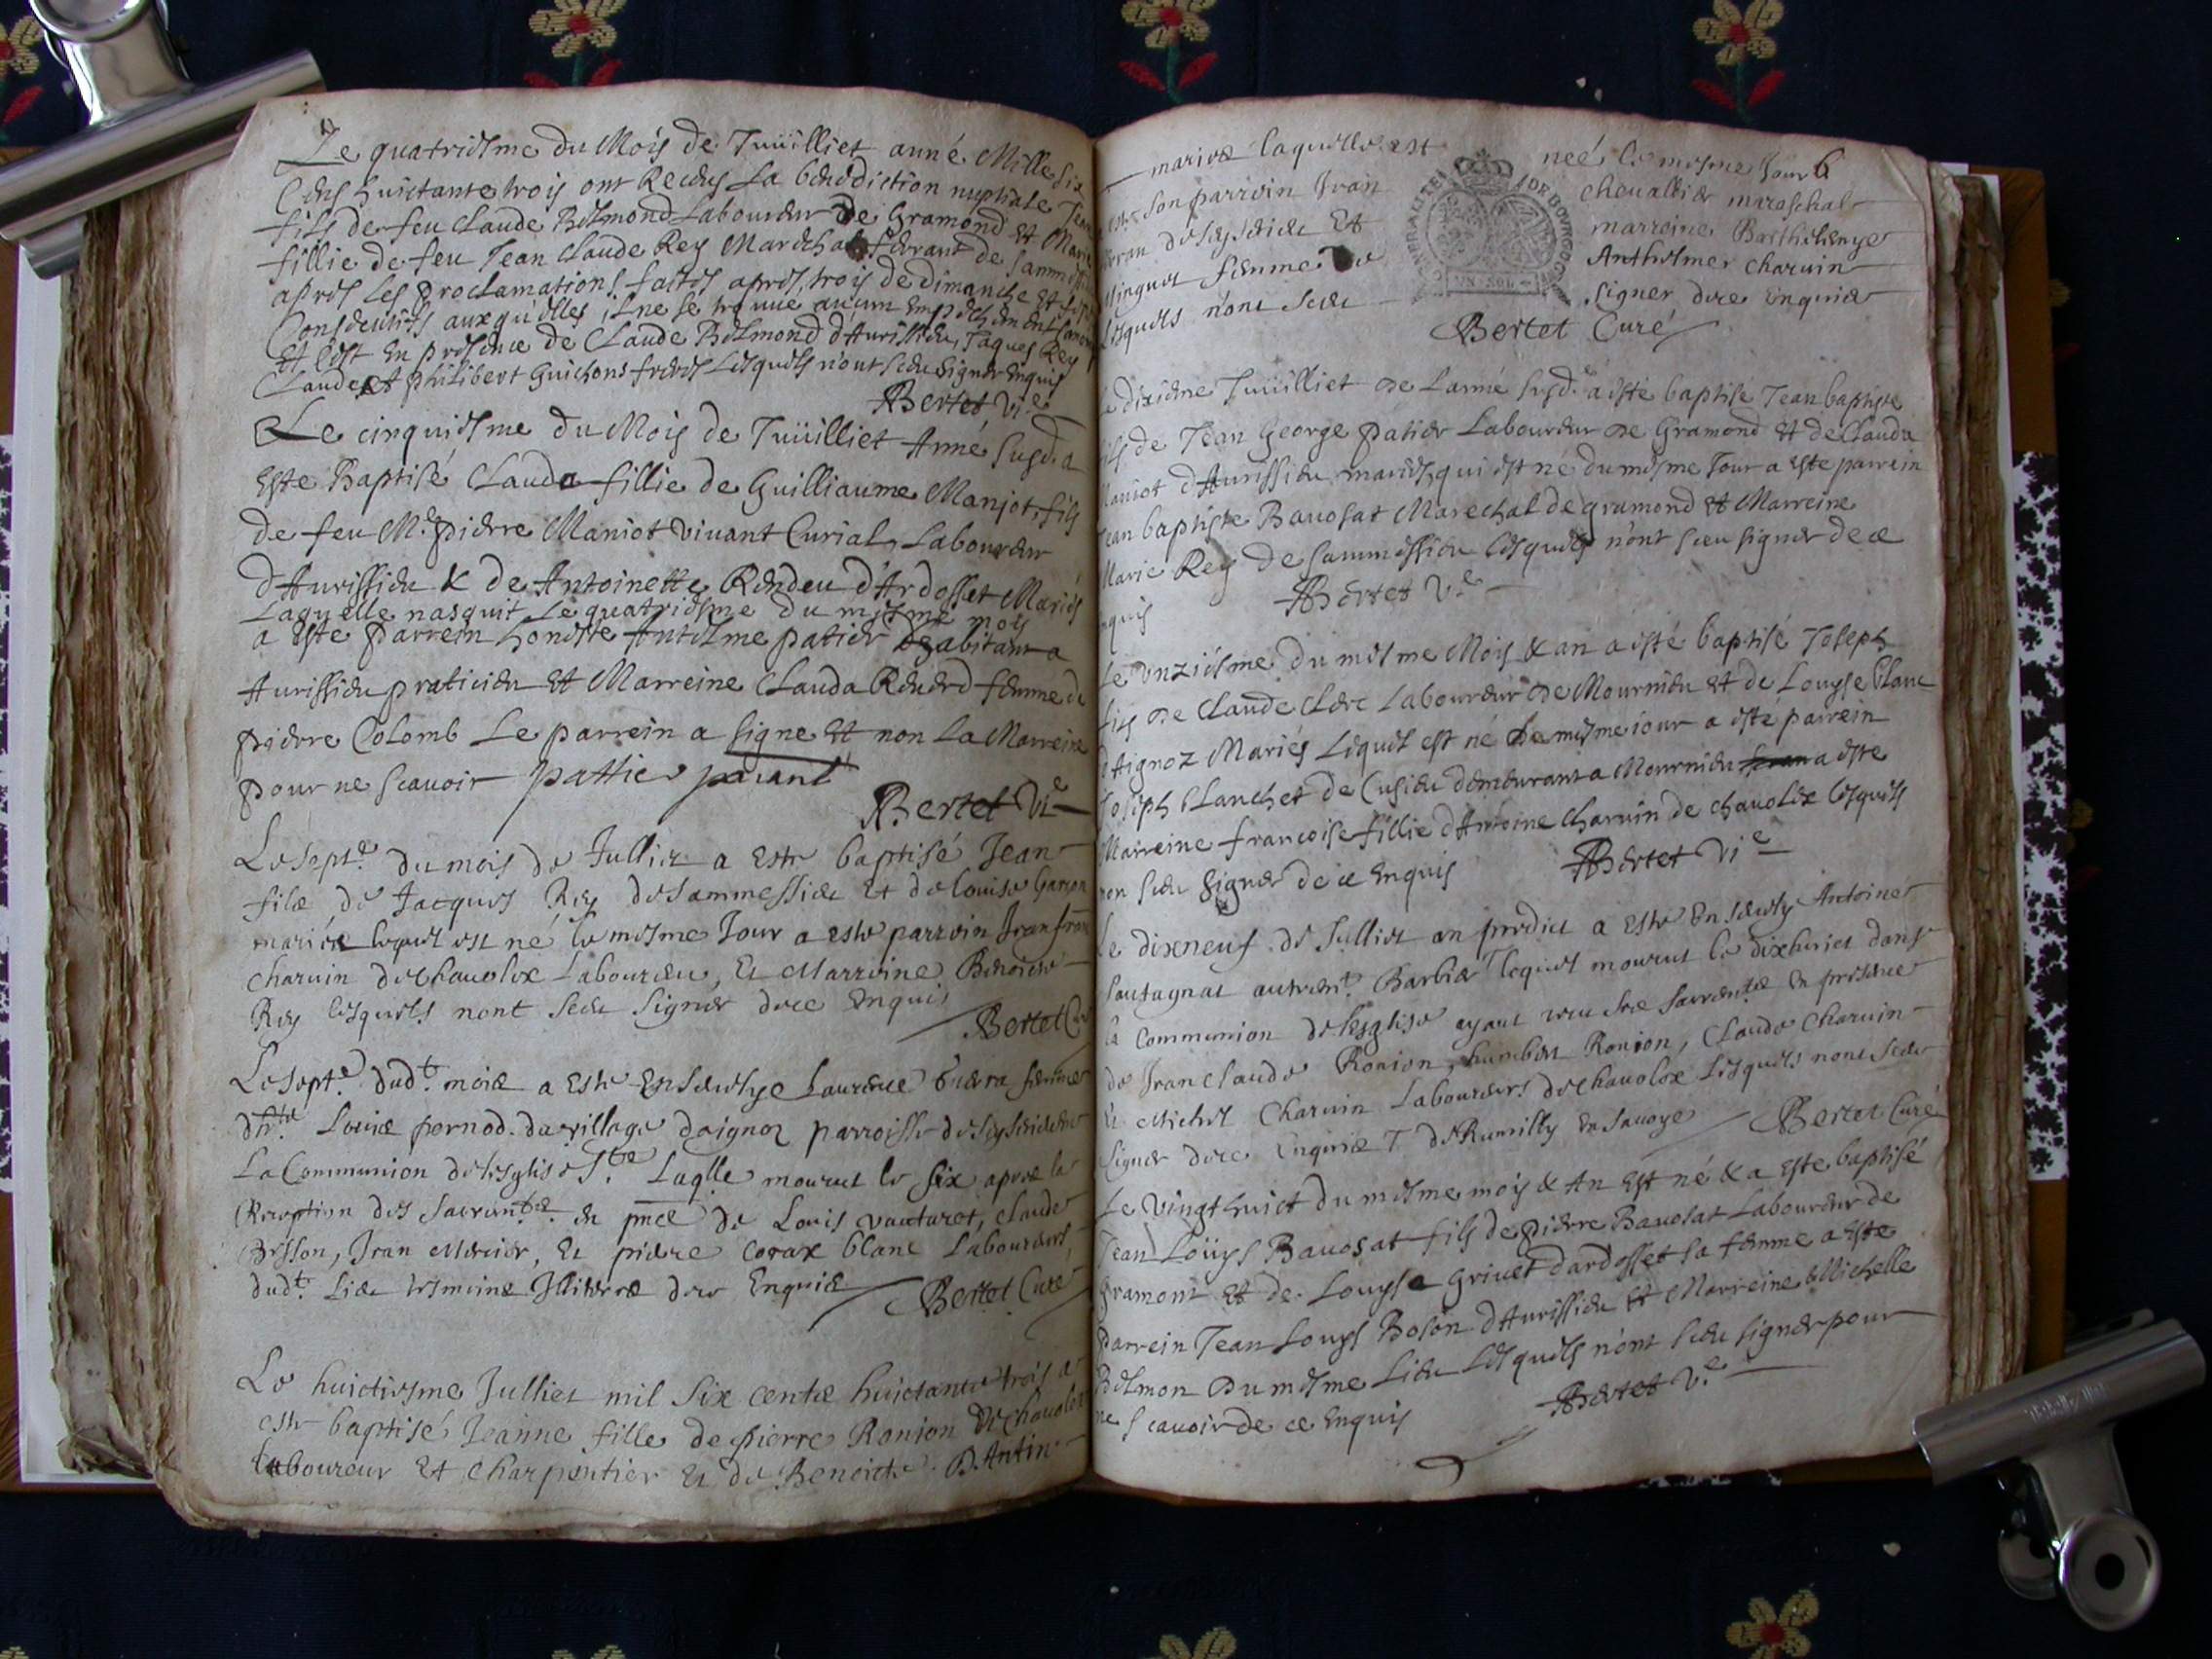 Le quatriesme du Mois de Juïilliet anné Mille six
Cens huictante trois ont Receus La benediction nuptiale Jean
fils de feu Claude Belmond Laboureur de Gramond et Marie
fillie de feu Jean Claude Rey Marechal ferrant de Sammessieu
apres Les proclamations faites apres trois de dimanche et
Consecutifs auxquelles il ne se trouue aucun Empechement
Et C'est En presence de Claude Belmond d'Aurissieu, Jaques Rey
Claude et philibert Guichons freres Lesquels n'ont sceu signer Enquis
Bertet Vi.e
Le cinquiesme du Mois de Juïilliet Anné susd. a
Este Baptisé Clauda fillie de Guilliaume Manjot, fils
de feu M.e pierre Maniot viuant Curial, Laboureur
d'Aurissieu & de Antoinette Rendeu d'Ardosset Mariés
Laquelle nasquit Le quatriesme du mesme mois
a Este parrein honeste Antelme patier habitant a
Aurissieu praticien Et Marreine Clauda Reuerd femme de
pierre Colomb Le parrein a signe Et non La Marreine
pour ne scauoir pattier parant
Bertet Vi.e
Le sept.e du mois de Julliet a este baptisé Jean
filz de Jacques Rey de Sammessieu Et de Louise Garson
mariéz lequel est né le mesme Jour a este parrein Jean
Charuin de Chauoley Laboureur, Et Marreine Benoiste
Rey lesquels nont sceu signer dece Enquis
Bertet Curé
Le sept.e dud.t mois a este Enseuelye Laurence femme
Louis pornod. du village daignoz parroisse de Seyssieu en
La Communion de lesglise S.te Laqlle mourut le six apres la
Reception des Sacrem.ts en pnce de Louis vauturet, Claude
Brisson, Jean Mercier, Et pierre Corax blanc Laboureurs
dud.t Lieu tesmoins Illiteres dece Enquis
Bertet Curé
Le huictiesme Julliet mil six centz huictante trois a
este baptisé Jeanne fille de pierre Ronion de Chauoley
laboureur Et Charpentier Et de Benoicte D.Antin
mariez laquelle est neé le mesme Jour 6
son parrein Jean Cheuallier mareschal
de Seyssieu Et marreine Barthelemye
femme de Anthelme Charuin
Lesquels n'ont sceu signer dece Enquis
GENERALITE DE BOVRGOGNE
VN SOL
Bertet Curé
Le dixieme Juïilliet de L'anné susd.e a esté baptisé Jean baptiste
fils de Jean George patier Laboureur de Gramond Et de Clauda
Maniot d'Aurissieu mariés, qui est né du mesme Jour a Este parrein
Jean baptiste Bauosat Marechal de gramond Et Marreine
Marie Rey de Sammessieu Lesquels n'ont sceu signer de ce
Enquis Bertet V.e
Le vnziésme du mesme Mois & an a esté baptisé Joseph
fils de Claude Clerc Laboureur de Mournieu Et de Louyse blanc
d'Aignoz Mariés Lequel est né le mesme iour a esté parrein
Joseph blanchet de Cusieu demeurant a Mournieu a este
Marreine francoise fillie d'Antoine Charuin de Chauoley Lesquels
non sceu signer de ce Enquis Bertet Vi.e
Le dixneuf de Julliet an predict a este Enseuely Antoine
Soutagnat autrem.t Barbier T lequel mourut le dixhuict dans
la Communion de lesglise ayant receu ses Sacrem.ts en presence
de Jean Claude Ronion, humbert Ronion, Claude Charuin
Et Michel Charuin Laboureurs de Chauoley Lesquels nont sceu
signer dece Enquis T de Rumilly en Sauoye Bertet Curé
Le Vingthuict du mesme mois & An Est né & a Este baptisé
Jean Loüys Bauosat fils de pierre Bauosat Laboureur de
Gramont Et de Louyse Griuet d'ardosset sa femme a Este
Parrein Jean Louys Boson d'Aurissieu Et Marreine Michelle
Belmon Du mesme Lieu Lesquels n'ont sceu signer pour
ne scauoir de ce Enquis Bertet V.e